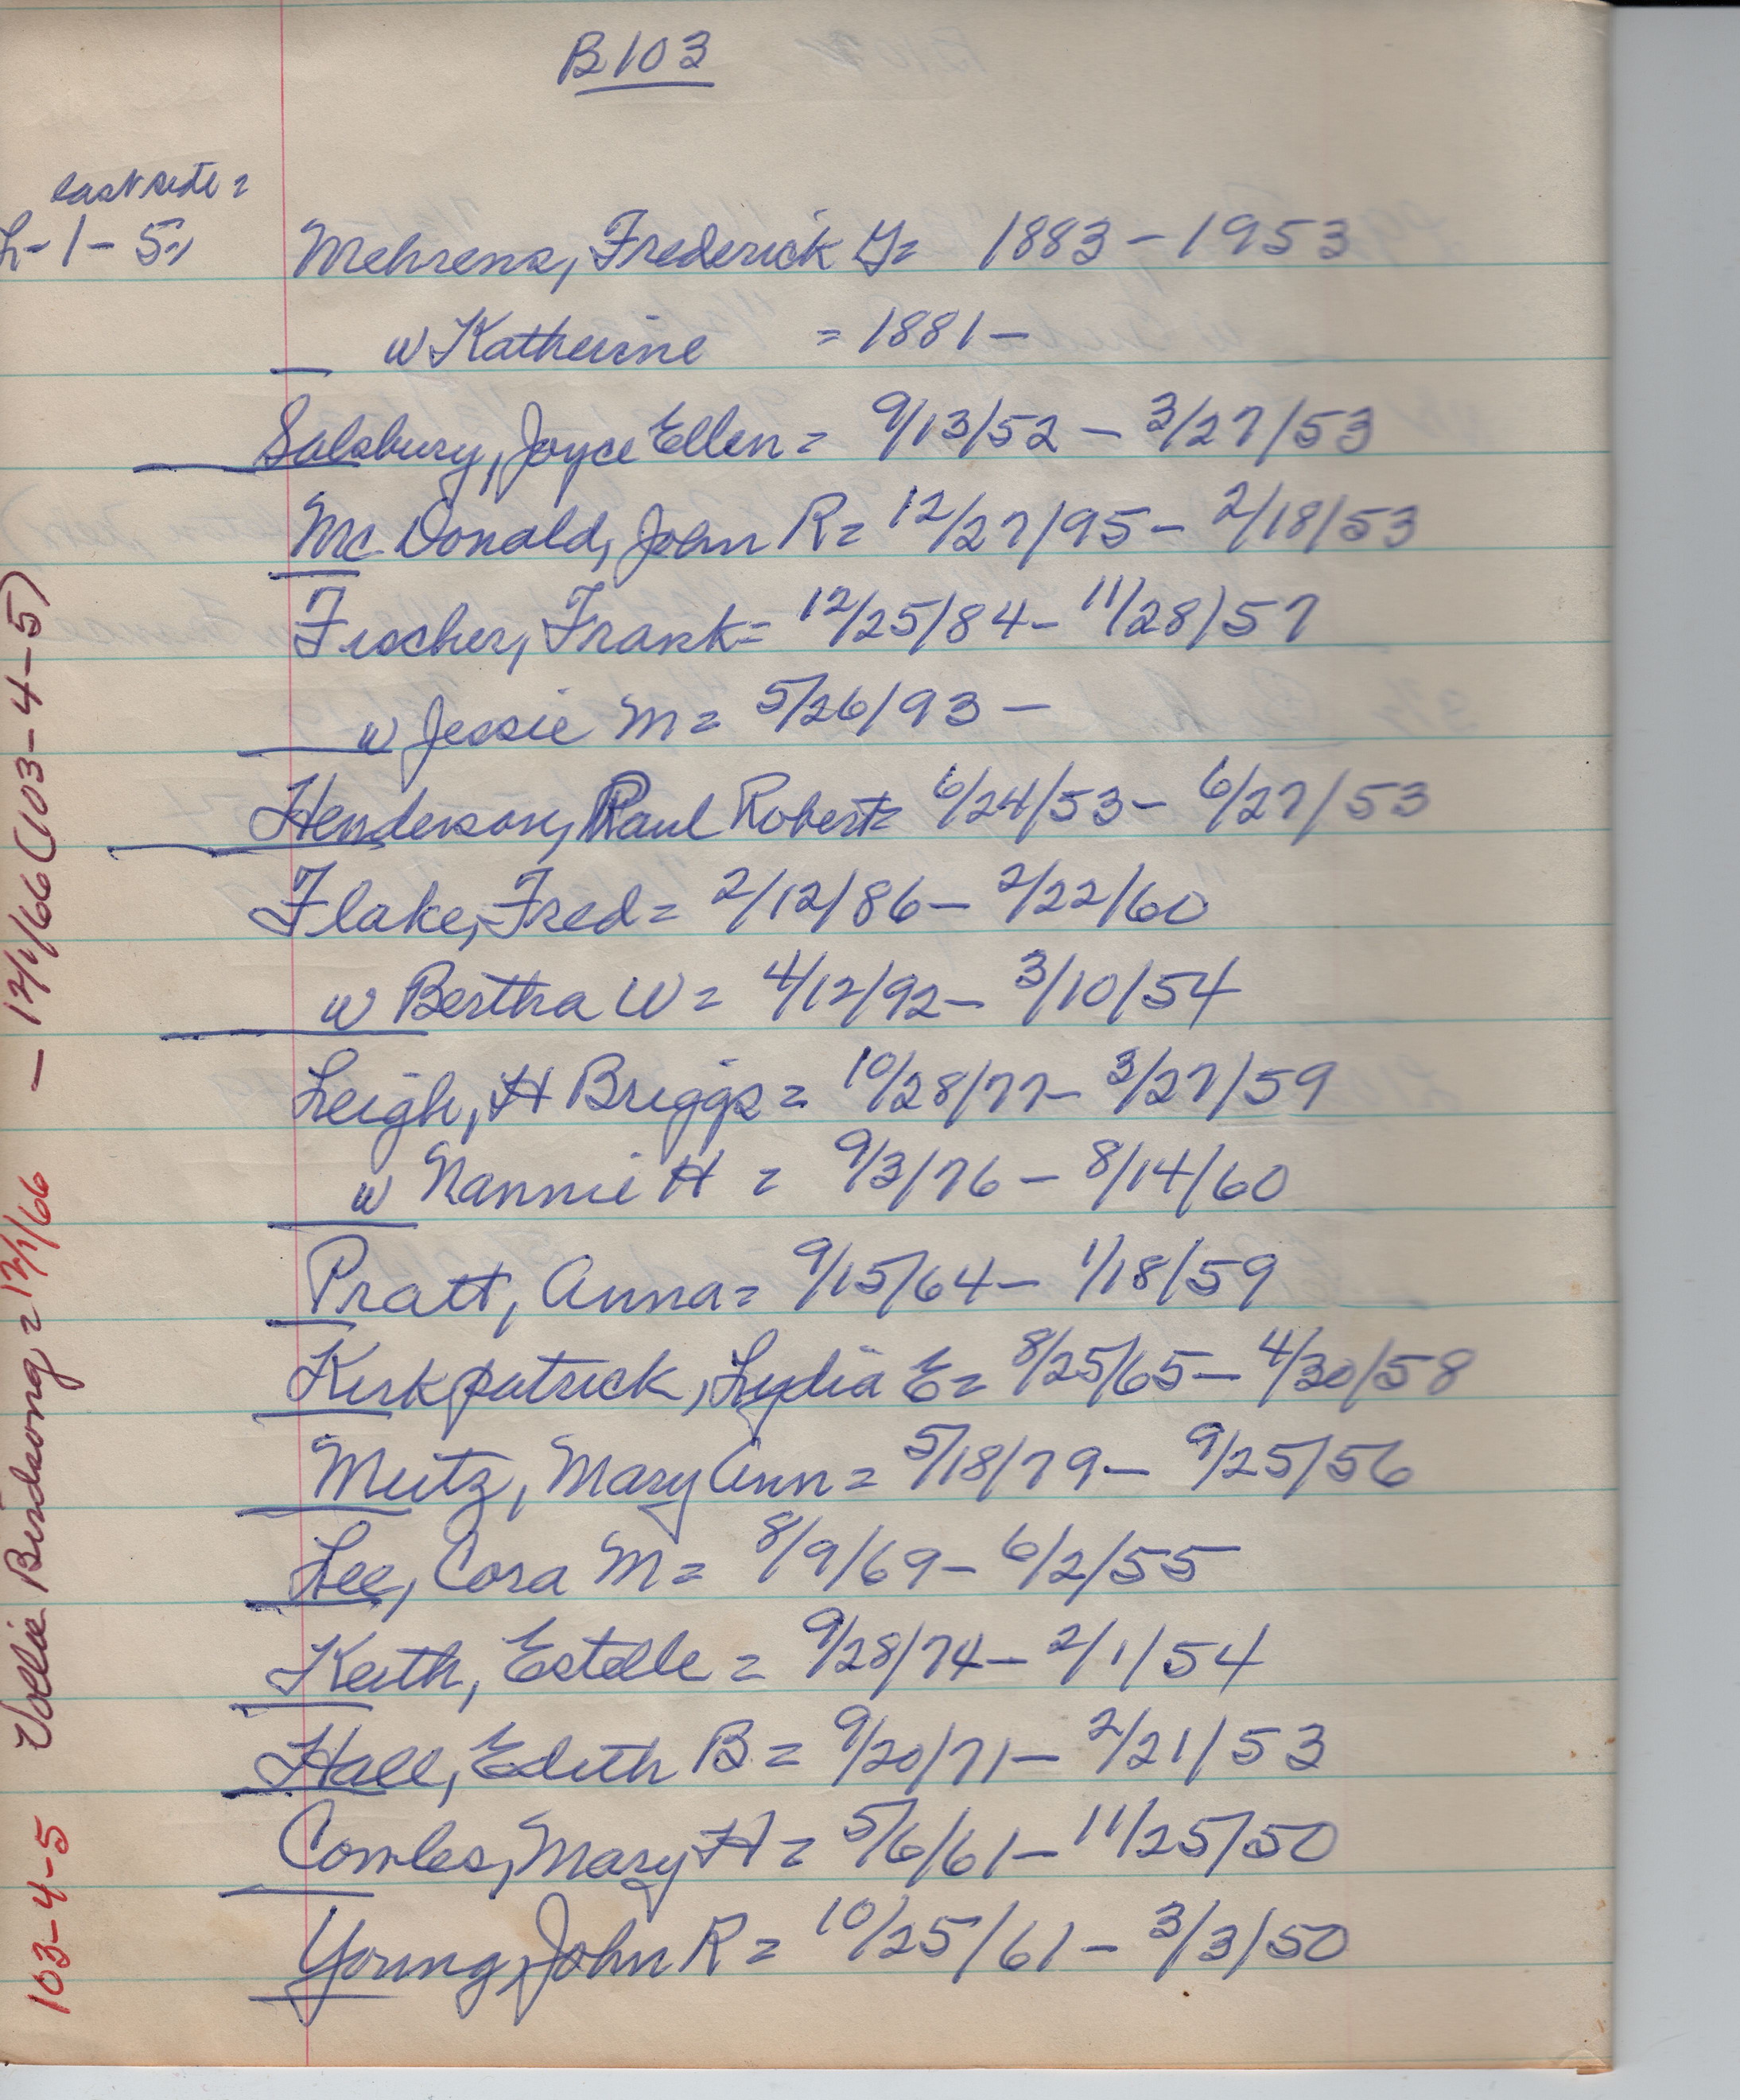 B103
east side =
L-1-5=
Mehrens, Frederick G= 1883-1953
w Katherine = 1881-
Salsbury, Joyce Ellen= 9/13/52 - 3/27/53
McDonald, John R= 12/27/95- 2/18/53
Fischer, Frank= 12/25/84- 11/28/57
w Jessie M= 5/26/93 -
Henderson, Paul Robert= 6/24/53- 6/27/53
Flake, Fred= 2/12/86- 2/22/60
w Bertha W= 4/12/92- 3/10/54
Leigh, H Briggs= 10/28/77- 3/27/59
w Nannie H = 9/3/76- 8/14/60
Pratt, Anna= 9/15/64- 1/18/59
Kirkpatrick, Lydia E= 8/25/65- 4/30/58
Meitz, Mary Ann= 5/18/79- 9/25/56
Lee, Cora M= 8/9/69- 6/2/55
Keith, Estelle = 9/28/74- 2/1/54
Hall, Edith B= 9/20/71- 2/21/53
Combes, Mary H= 5/6/61- 11/25/50
Young, John R= 10/25/61- 3/3/50
103-4-5 Vollie Birdsong = 12/1/66 - 12/1/66 (103-4-5)